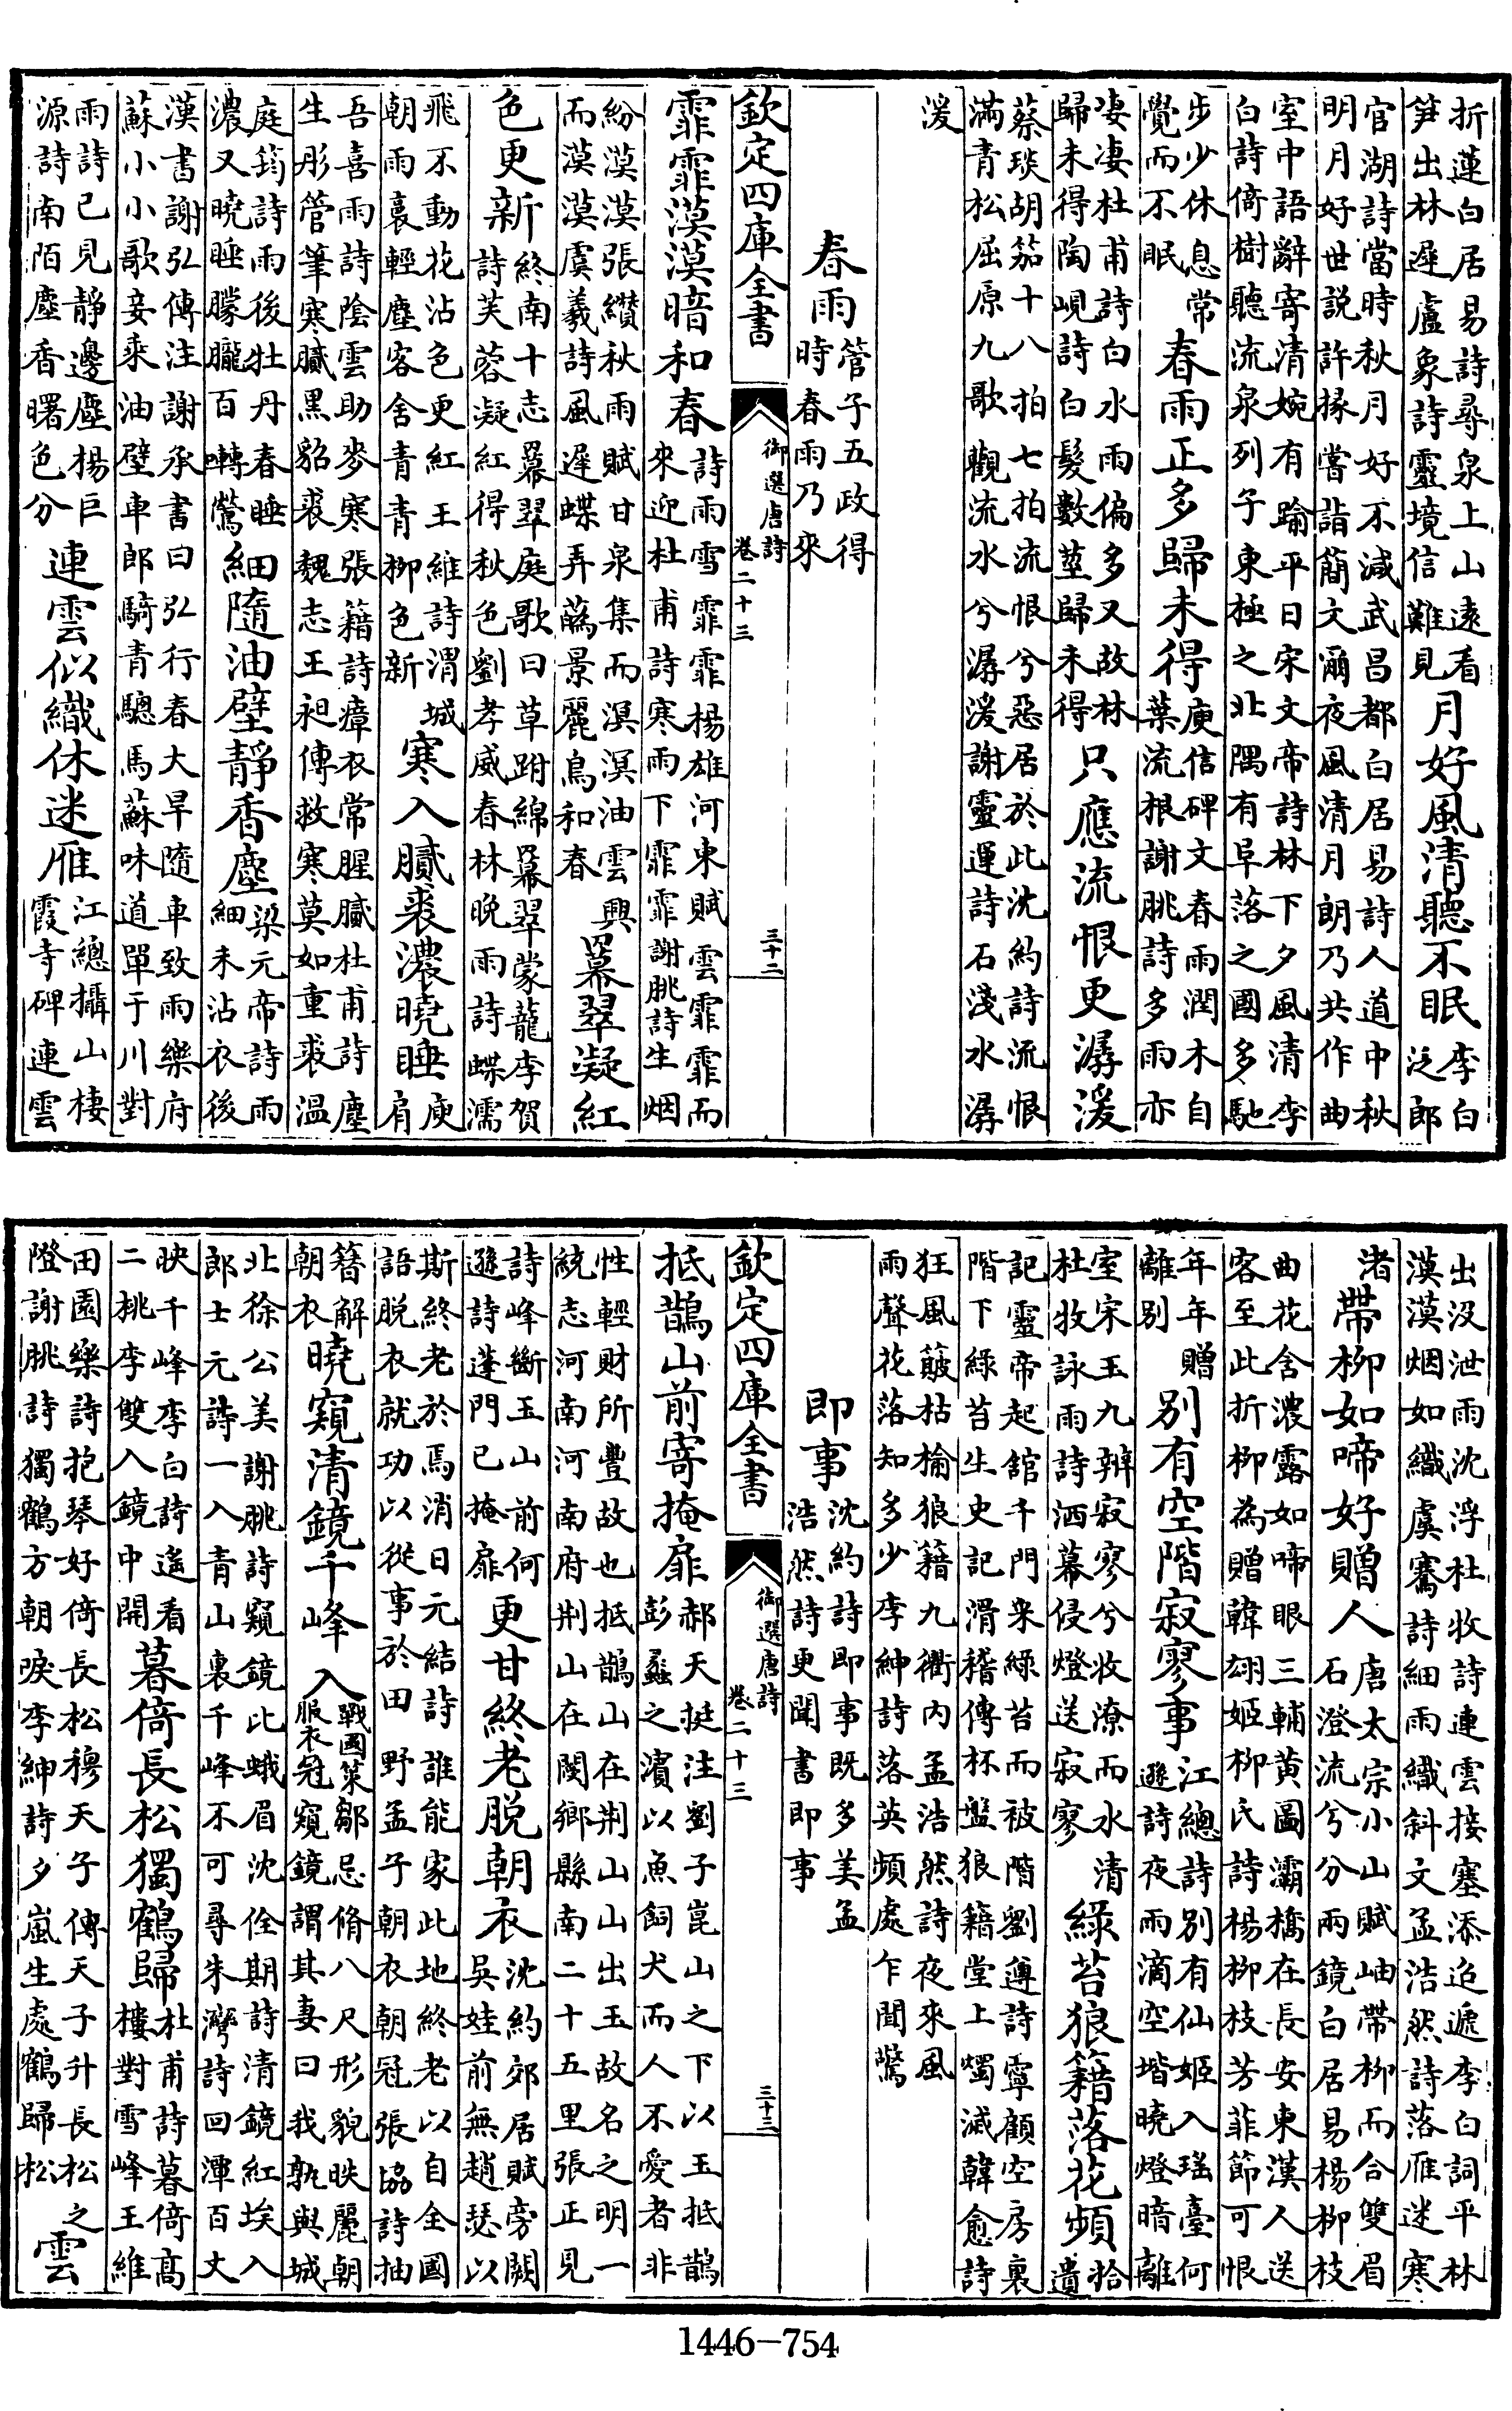 折蓮白居易詩尋泉上山遠看
笋出林遲盧象詩靈境信難見
月好風清聽不眠
李白
泛郎
官湖詩當時秋月好不減武昌都白居易詩人道中秋
明月好世説許掾嘗詣簡文爾夜風清月朗乃共作曲
室中語辭寄清婉有踰平日宋文帝詩林下夕風清李
白詩倚樹聽流泉列子東極之北隅有阜落之國多馳
步少休息常
覺而不眠
春雨正多歸未得
庾信碑文春雨潤木自
葉流根謝朓詩多雨亦
淒淒杜甫詩白水雨偏多又故林
歸未得陶峴詩白髮數莖歸未得
只應流恨更潺湲
蔡琰胡笳十八拍七拍流恨兮惡居於此沈約詩流恨
滿青松屈原九歌觀流水兮潺湲謝靈運詩石淺水潺
湲
春雨
管子五政得
時春雨乃來
欽定四庫全書
御選唐詩
卷二十三
三十二
霏霏漠漠暗和春
詩雨雪霏霏楊雄河東賦雲霏霏而
來迎杜甫詩寒雨下霏霏謝朓詩生烟
紛漠漠張纘秋雨賦甘泉集而溟溟油雲興
而漠漠虞羲詩風遲蝶弄蕊景麗鳥和春
羃翠凝紅
色更新
終南十志羃翠庭歌曰草跗綿羃翠蒙龍李賀
詩芙蓉凝紅得秋色劉孝威春林晚雨詩蝶濡
飛不動花沾色更紅王維詩渭城
朝雨裛輕塵客舍青青柳色新
寒入膩裘濃曉睡
庾
肩
吾喜雨詩陰雲助麥寒張籍詩瘴衣常腥膩杜甫詩塵
生彤管筆寒膩黑貂裘魏志王昶傳救寒莫如重裘温
庭筠詩雨後牡丹春睡
濃又曉睡朦朧百囀鶯
細隨油壁靜香塵
梁元帝詩雨
細未沾衣後
漢書謝弘傳注謝承書曰弘行春大旱隨車致雨樂府
蘇小小歌妾乘油壁車郎騎青驄馬蘇味道單于川對
雨詩已見靜邊塵楊巨
源詩南陌塵香曙色分
連雲似織休迷雁
江總攝山棲
霞寺碑連雲
出没泄雨沈浮杜牧詩連雲接塞添迢遞李白詞平林
漠漠烟如織虞騫詩細雨織斜文孟浩然詩落雁迷寒
渚
帶柳如啼好贈人
唐太宗小山賦岫帶柳而合雙眉
石澄流兮分兩鏡白居易楊柳枝
曲花含濃露如啼眼三輔黃圖灞橋在長安東漢人送
客至此折柳為贈韓翃姬柳氏詩楊柳枝芳菲節可恨
年年贈
離別
別有空階寂寥事
江總詩別有仙姬入瑤臺何
遜詩夜雨滴空堦曉燈暗離
室宋玉九辨寂寥兮收潦而水清
杜牧詠雨詩洒幕侵燈送寂寥
綠苔狼籍落花頻
拾
遺
記靈帝起館千門采綠苔而被階劉遵詩寧顧空房裏
階下綠苔生史記滑稽傳杯盤狼籍堂上燭滅韓愈詩
狂風簸枯榆狼籍九衢内孟浩然詩夜來風
雨聲花落知多少李紳詩落英頻處乍聞鶯
即事
沈約詩即事既多美孟
浩然詩更聞書即事
欽定四庫全書
御選唐詩
卷二十三
三十三
抵鵲山前寄掩扉
郝天挺注劉子崑山之下以玉抵鵲
彭蠡之濱以魚飼犬而人不愛者非
性輕財所豐故也抵鵲山在荆山山出玉故名之明一
統志河南河南府荆山在閿鄉縣南二十五里張正見
詩峰斷玉山前何
遜詩蓬門已掩扉
更甘終老脱朝衣
沈約郊居賦旁闕
吳娃前無趙瑟以
斯終老於焉消日元結詩誰能家此地終老以自全國
語脱衣就功以從事於田野孟子朝衣朝冠張協詩抽
簪解
朝衣
曉窺清鏡千峰入
戰國策鄒忌脩八尺形貌昳麗朝
服衣冠窺鏡謂其妻曰我孰與城
北徐公美謝朓詩窺鏡比蛾眉沈佺期詩清鏡紅埃入
郎士元詩一入青山裏千峰不可尋朱灣詩回潭百丈
映千峰李白詩遙看
二桃李雙入鏡中開
暮倚長松獨鶴歸
杜甫詩暮倚高
樓對雪峰王維
田園樂詩抱琴好倚長松穆天子傳天子升長松之
隥謝朓詩獨鶴方朝唳李紳詩夕嵐生處鶴歸松
雲
1446-754